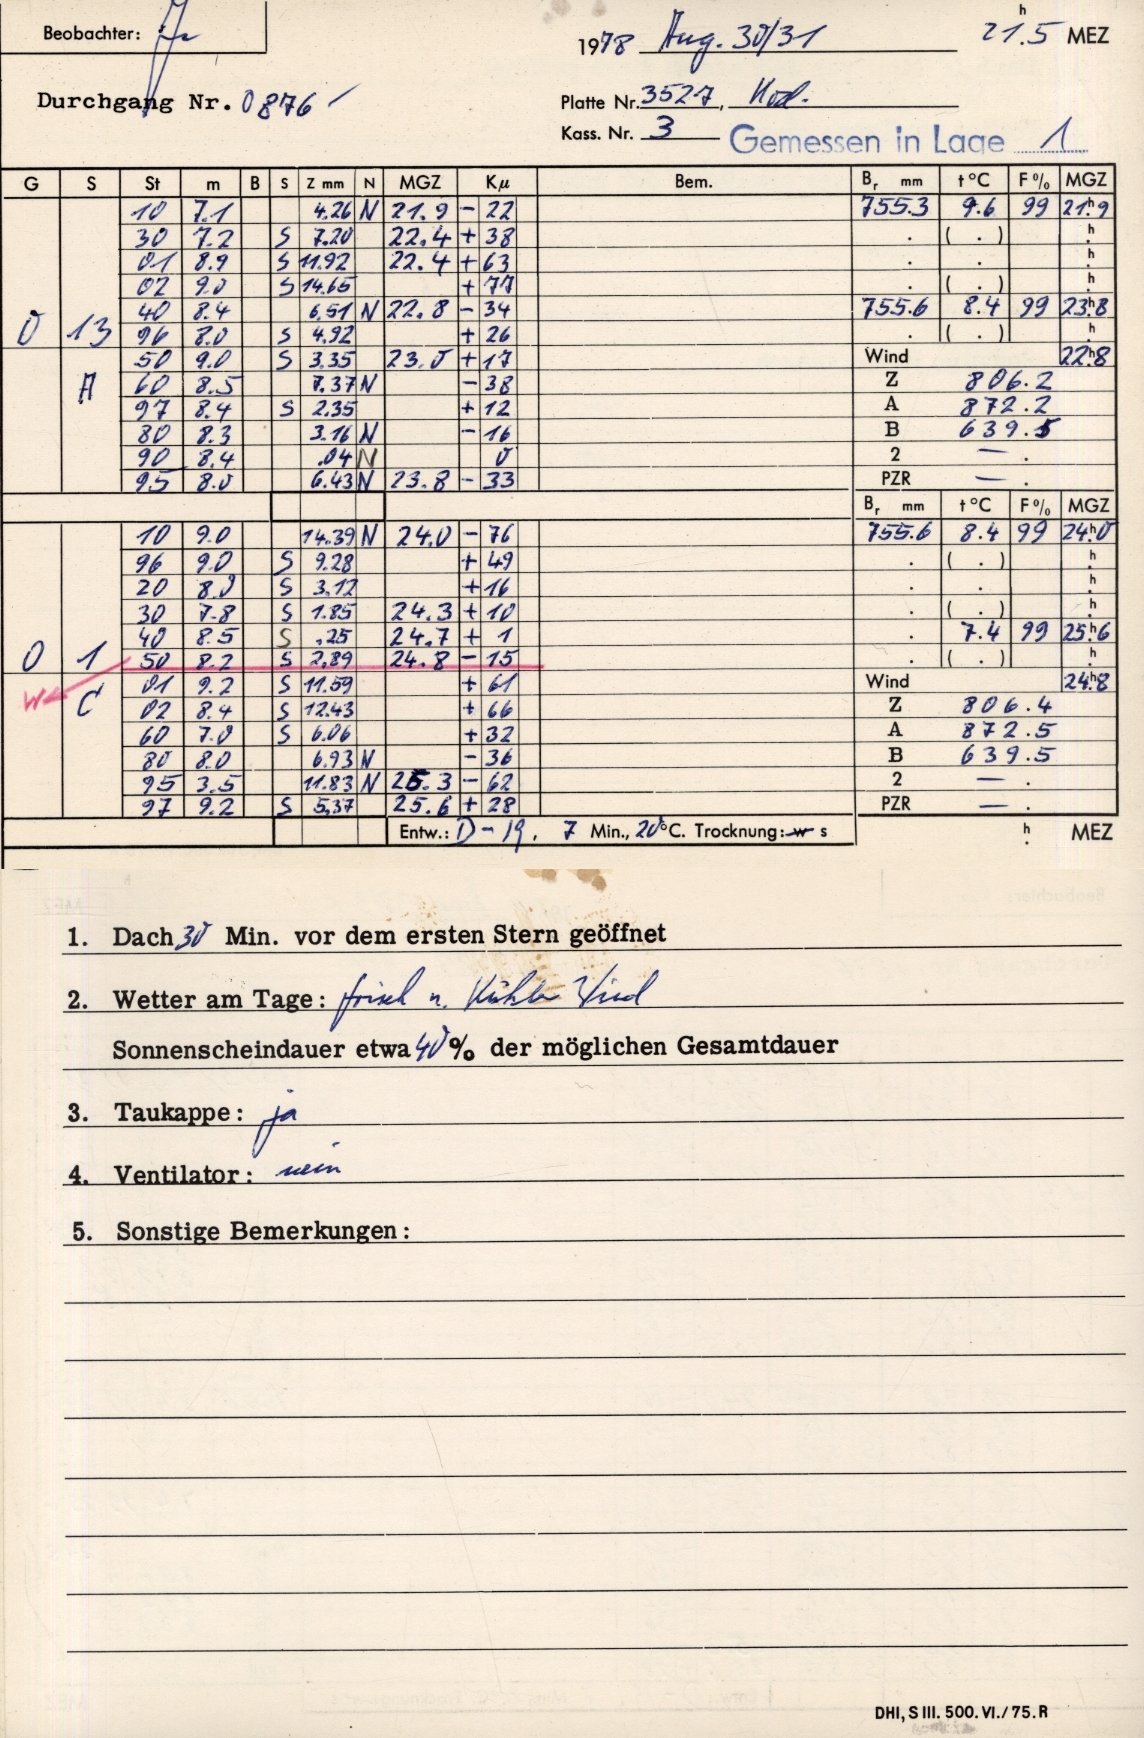 Beobachter: Jr
1978 Aug. 30/31 21h.5 MEZ
Durchgang Nr. 0876
Platte Nr. 3527, Kod.
Kass. Nr. 3 Gemessen in Lage 1
G S St m B S Z mm N MGZ Kμ Bem. Br mm t °C F % MGZ
10 7.1 4.26 N 21.9 - 22 755.3 9.6 99 21h9
30 7.2 S 7.20 22.4 + 38 . ( . ) h
01 8.9 S 11.92 22.4 + 63 . . h
02 9.0 S 14.65 + 77 . ( . ) h
40 8.4 6.51 N 22.8 - 34 755.6 8.4 99 23h8
0 13 96 8.0 S 4.92 + 26 . ( . ) h
50 9.0 S 3.35 23.0 + 17 Wind 22h8
A 60 8.5 7.37 N - 38 Z 806.2
97 8.4 S 2.35 + 12 A 872.2
80 8.3 3.16 N - 16 B 639.5
90 8.4 .04 N 0 2 — .
95 8.0 6.43 N 23.8 - 33 PZR — .
Br mm t °C F % MGZ
10 9.0 14.39 N 24.0 - 76 755.6 8.4 99 24h0
96 9.0 S 9.28 + 49 . ( . ) h
20 8.0 S 3.12 + 16 . . h
30 7.8 S 1.85 24.3 + 10 . ( . ) h
40 8.5 S .25 24.7 + 1 . 7.4 99 25h6
0 1 50 8.2 S 2.89 24.8 - 15 . ( . ) h
W C 01 9.2 S 11.59 + 61 Wind 24h8
02 8.4 S 12.43 + 66 Z 806.4
60 7.0 S 6.06 + 32 A 872.5
80 8.0 6.93 N - 36 B 639.5
95 3.5 11.83 N 25.3 - 62 2 — .
97 9.2 S 5.37 25.6 + 28 PZR — .
Entw.: D-19, 7 Min., 20°C. Trocknung: w s h MEZ
1. Dach 30 Min. vor dem ersten Stern geöffnet
2. Wetter am Tage: frisch u. kühler Wind
Sonnenscheindauer etwa 40 % der möglichen Gesamtdauer
3. Taukappe: ja
4. Ventilator: nein
5. Sonstige Bemerkungen:
DHI, S III. 500. VI./75. R